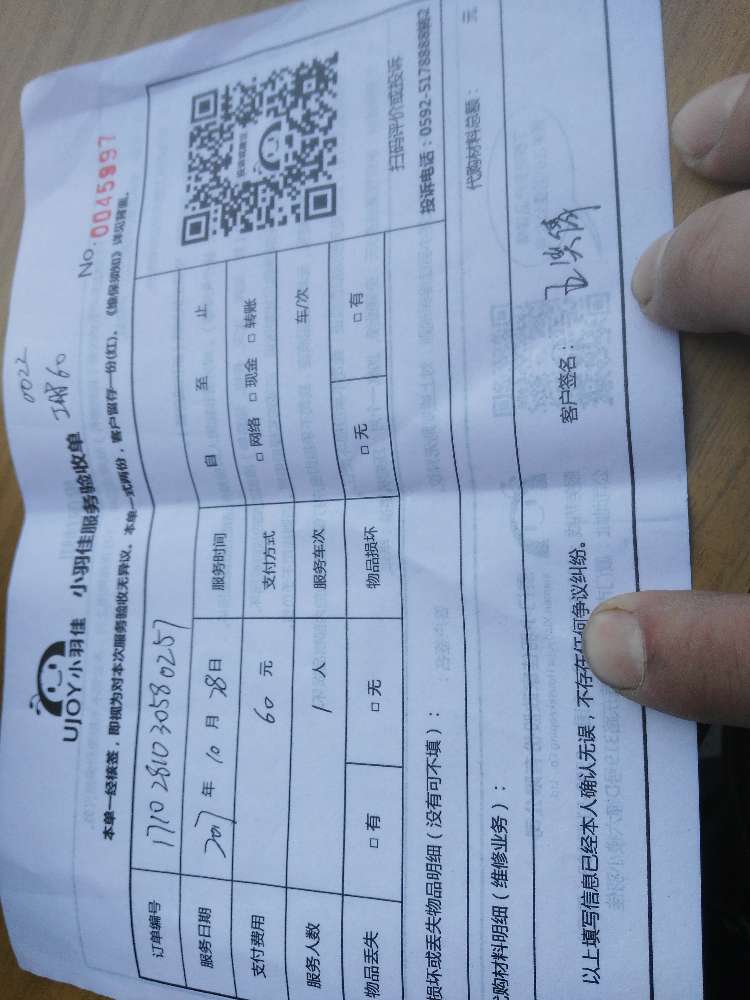 0022
UJOY小羽佳 小羽佳服务验收单 No. 0045997
本单一经核签，即视为对本次服务验收无异议。本单一式两份，客户留存一份(红)。《维保须知》详见背面。
订单编号 171028103058 0257
服务日期 2017 年 10 月 28 日 服务时间 自 至 止
支付费用 60 元 支付方式 □ 网络 □ 现金 □ 转账
服务人数 1 人 服务车次 车/次
物品丢失 □ 有 □ 无 物品损坏 □ 无 □ 有
扫码评价或投诉
投诉电话：0592-5178888转2
损坏或丢失物品明细（没有可不填）：
购材料明细（维修业务）： 代购材料总额： 元
以上填写信息已经本人确认无误，不存在任何争议纠纷。 客户签名：